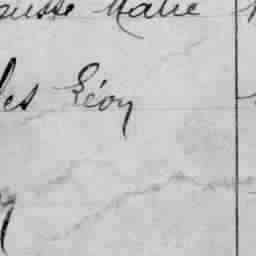 ousse Marie
les Léon